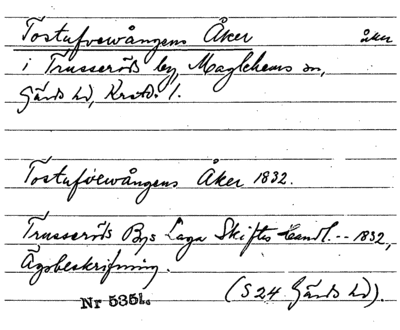 Tostafvevångens Åker åker
i Trusseröds by, Maglehems sn,
Gärds hd, Krstds l.
Tostafvevångens Åker 1832.
Trusseröds Bys Laga Skiftes Handl. -- 1832,
Ägobeskrifning.
(S 24 Gärds hd).
Nr 5351.